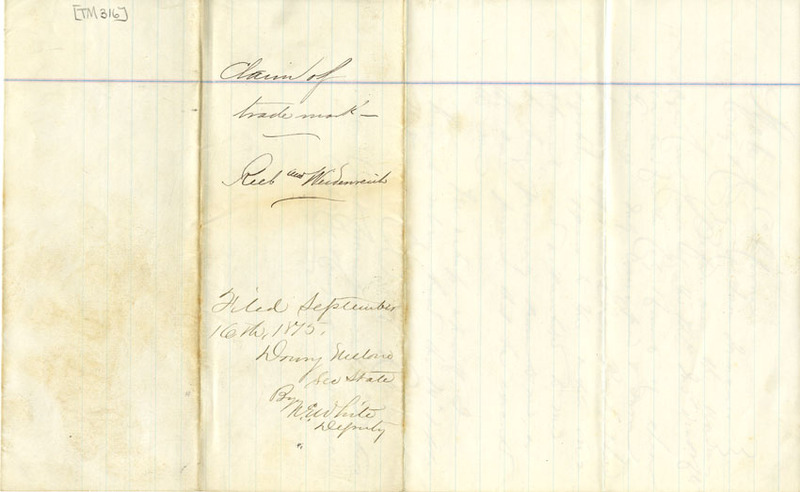 [TM 316]
Claim of
trade mark
Reeb and Weidenreich
Filed September
16th, 1875.
Drury Melone
Sec State
By
White
Deputy